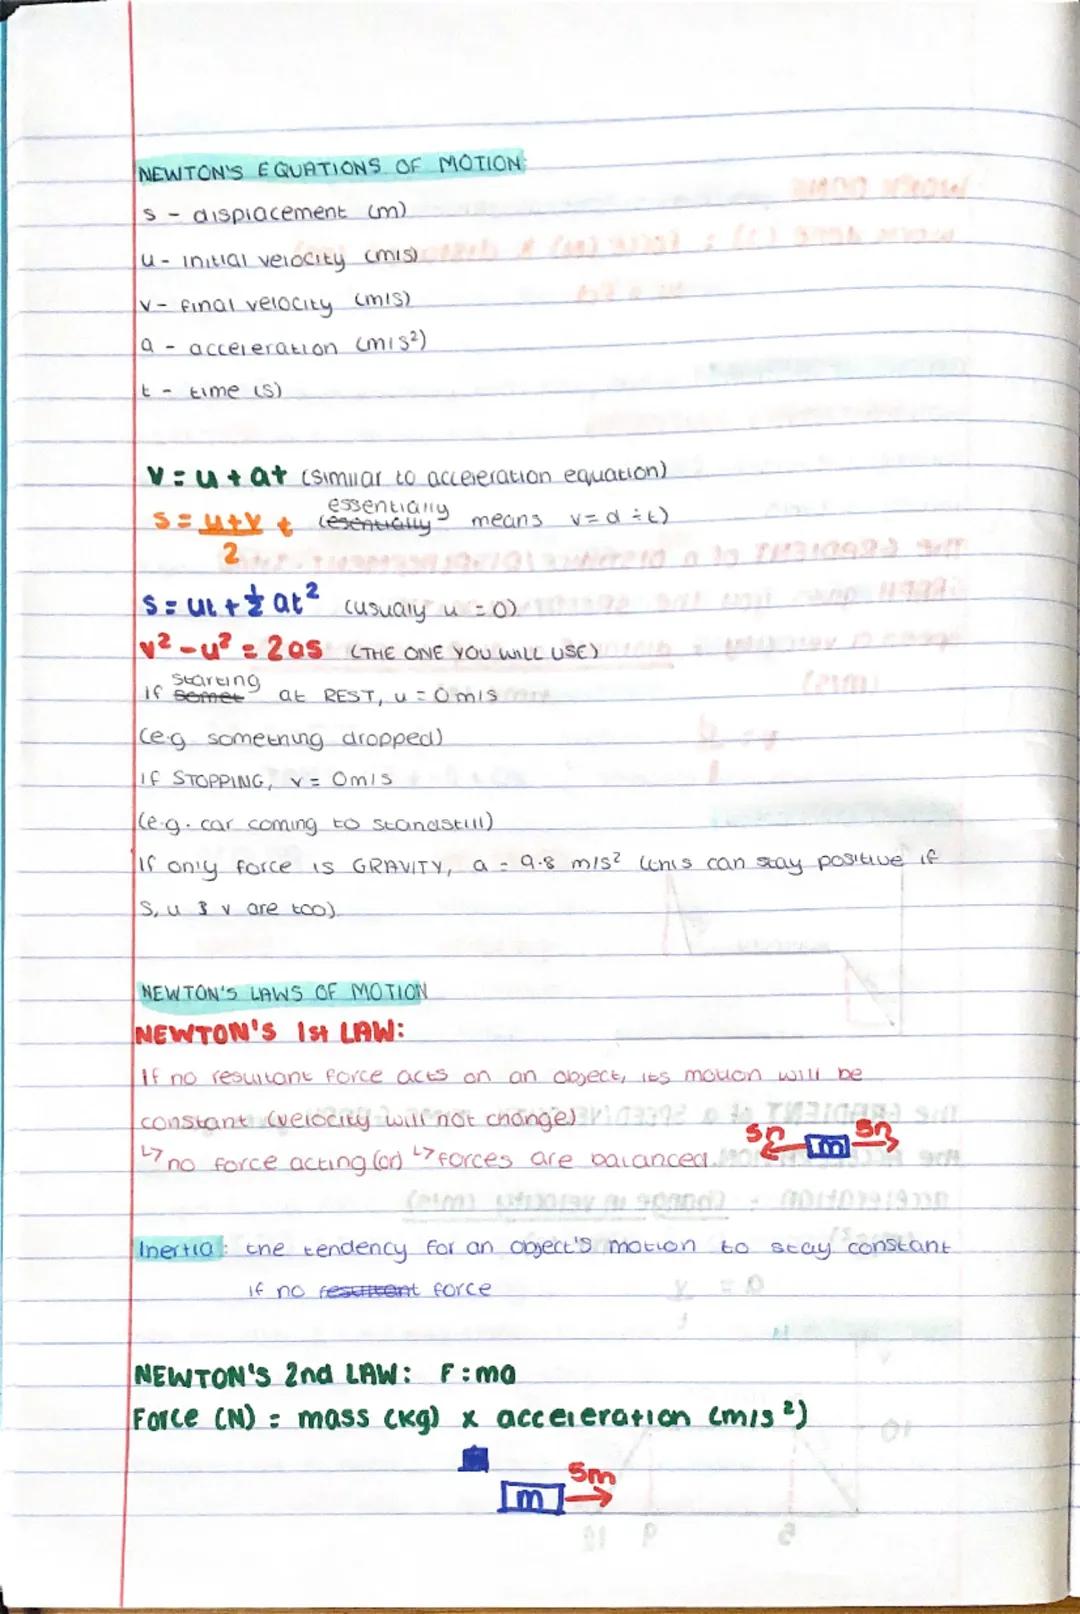 NEWTON'S EQUATIONS OF MOTION:
s - displacement (m)
u - initial velocity (m/s)
v - final velocity (m/s)
a - acceleration (m/s²)
t - time (s)
v = u + at (similar to acceleration equation)
essentially
s = u+v t (esentially means v = d ÷ t)
2
s = ut + ½ at² (usualy u = 0)
v² - u² = 2as (THE ONE YOU WILL USE)
starting
If somet at REST, u = 0m/s
(e.g. something dropped)
If STOPPING, v = 0m/s
(e.g. car coming to standstill)
If only force is GRAVITY, a = 9.8 m/s² (this can stay positive if
s, u & v are too)
NEWTON'S LAWS OF MOTION
NEWTON'S 1st LAW:
If no resultant force acts on an object, its motion will be
constant (velocity will not change)
↳ no force acting (or) ↳ forces are balanced.
5n m 5n
Inertia: the tendency for an object's motion to stay constant
if no resultant force
NEWTON'S 2nd LAW: F = ma
Force (N) = mass (kg) x acceleration (m/s²)
5m
m